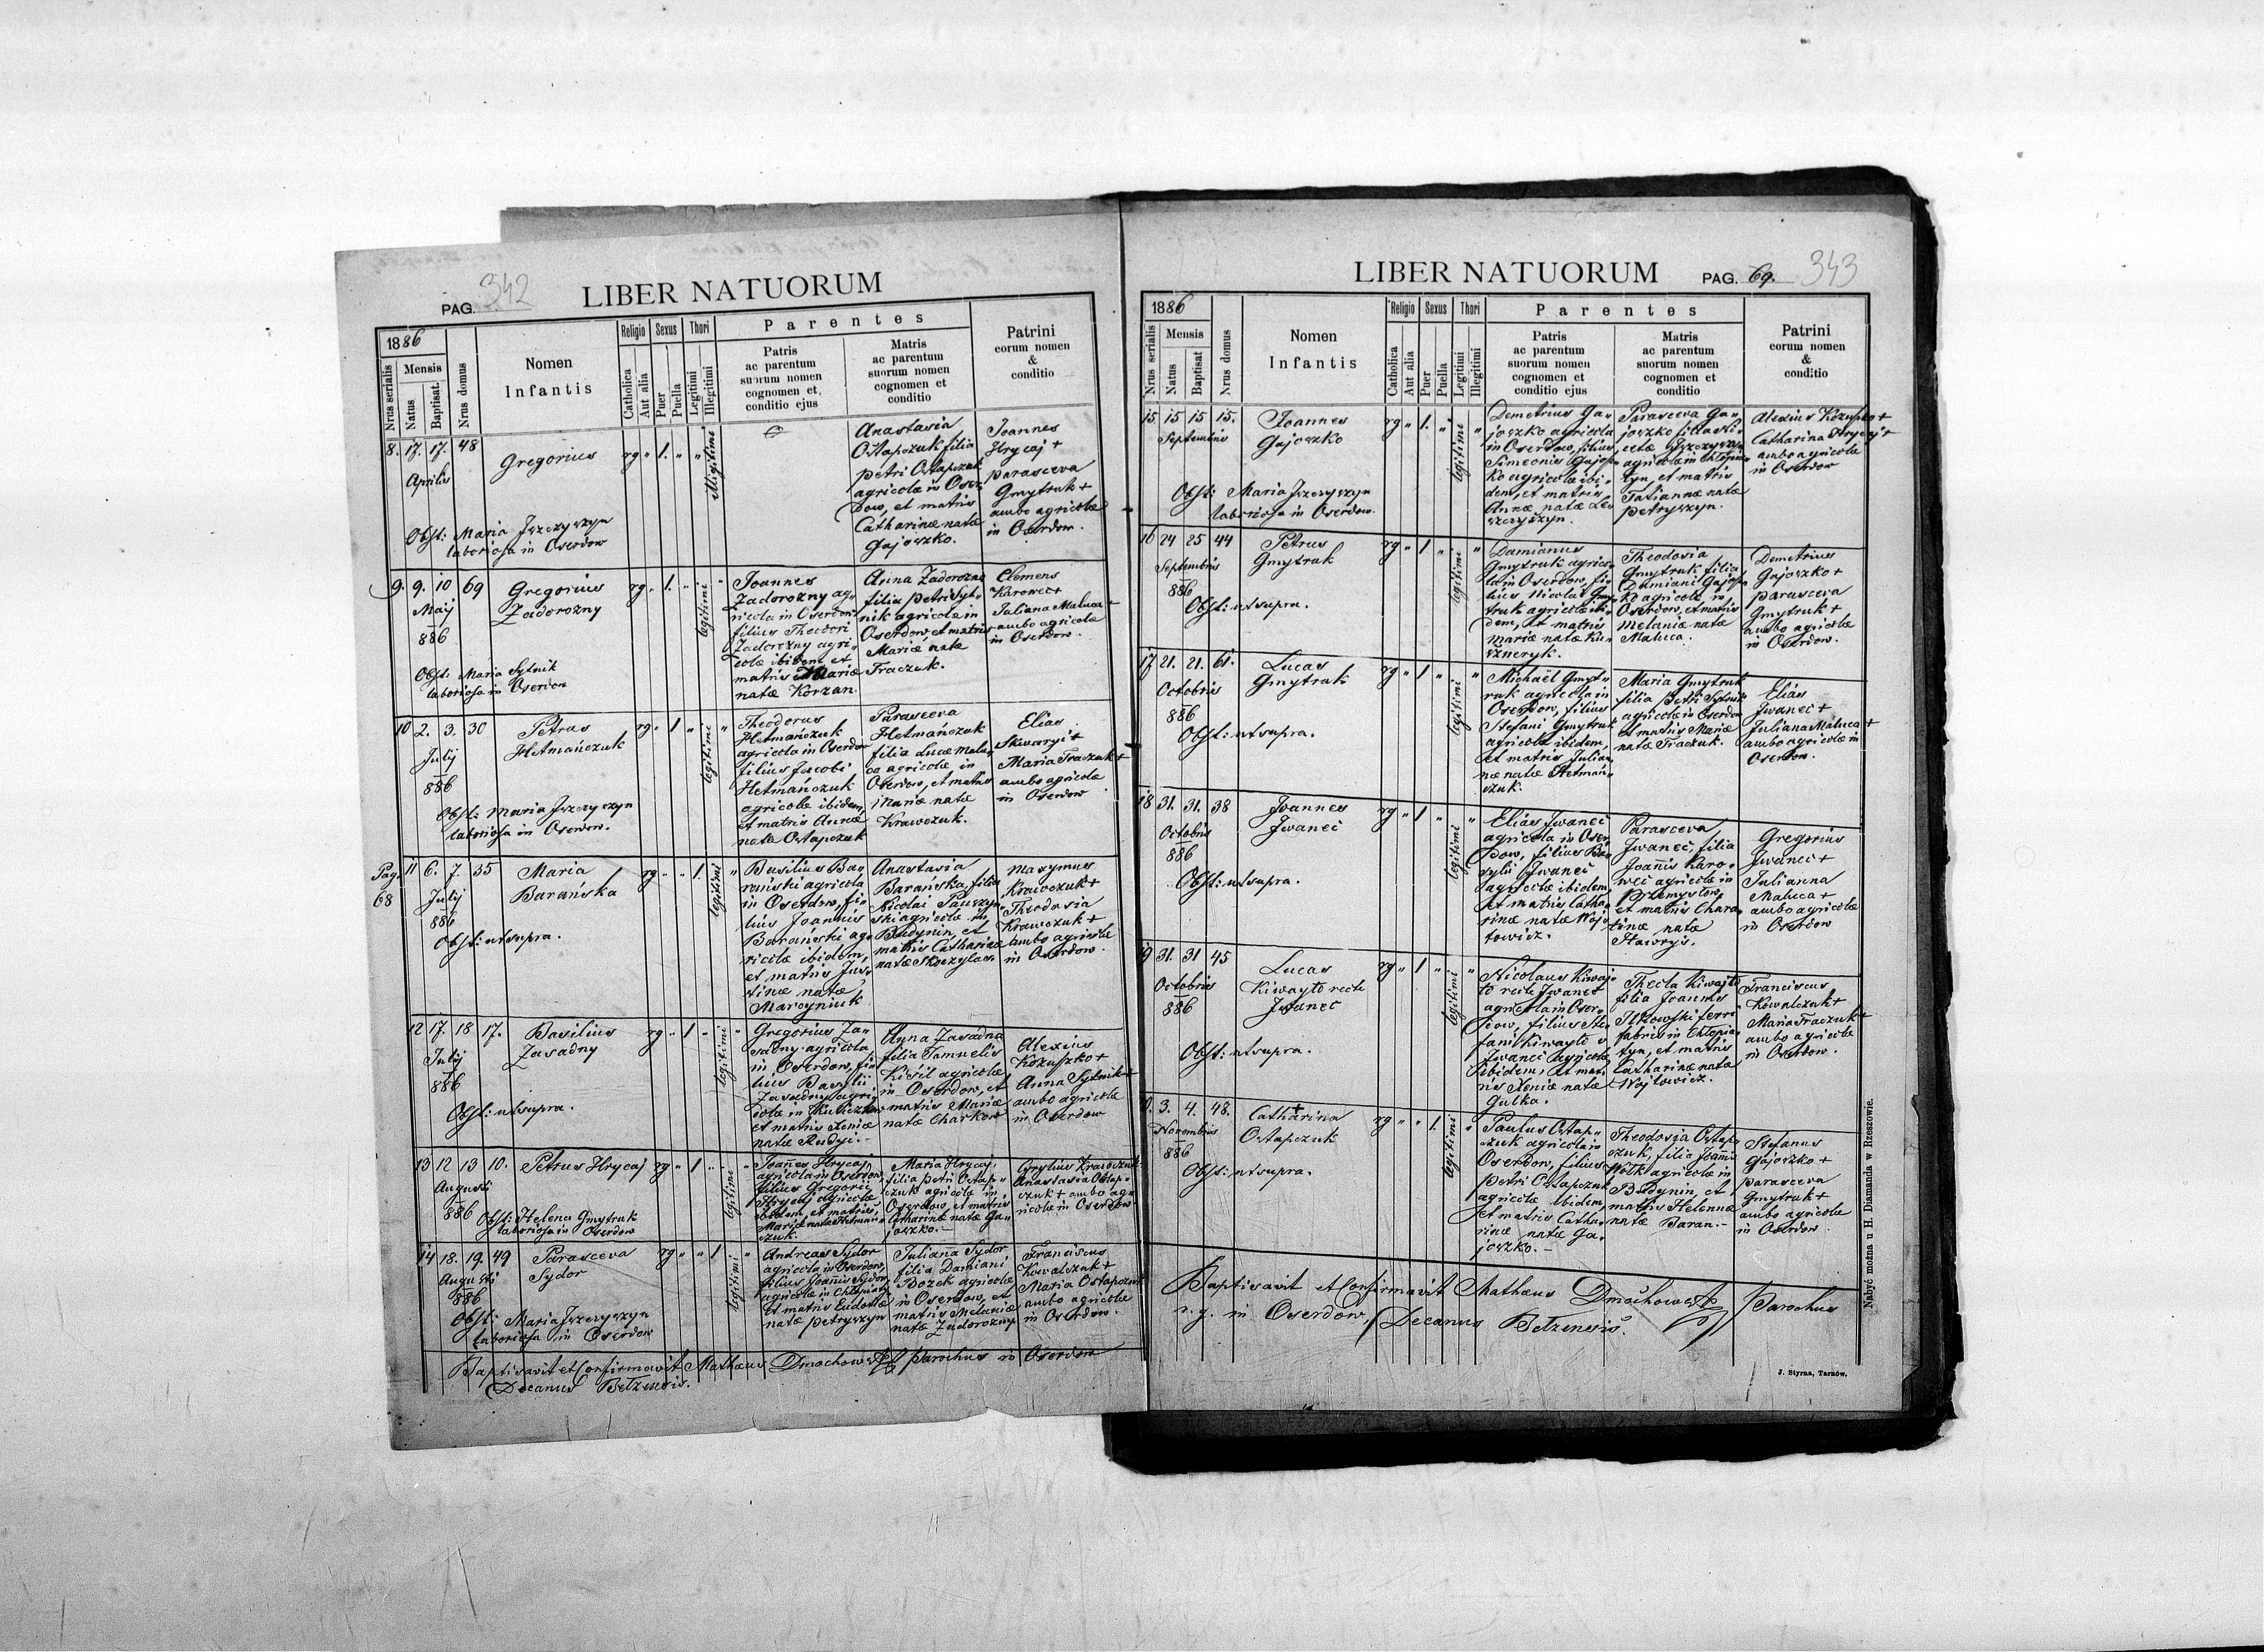 PAG. 342
LIBER NATUORUM
1886
Nrus serialis
Mensis
Natus
Baptisat.
Nrus domus
Nomen
Infantis
Religio
Catholica
Aut alia
Sexus
Puer
Puella
Thori
Legitimi
Illegitimi
Parentes
Patris
ac parentum
suorum nomen
cognomen et
conditio ejus
Matris
ac parentum
suorum nomen
cognomen et
conditio
Patrini
eorum nomen
&
conditio
8. 17. 17. 48
Aprilis
Gregorius
rg „ 1. „ „ illegitimi
Obst: Maria Iszczyszyn
laboriosa in Oserdow
Anastasia
Ostapczuk filia
Petri Ostapczuk
agricolæ in Oser
dow, et matris
Catharinæ natæ
Gajoszko.
Joannes
Hrycaj +
Parasceva
Gmytruk +
ambo agricolæ
in Oserdow.
9. 9. 10 69
Maij
886
Gregorius
Zadorozny
rg „ 1. „ legitimi „
Obst: Maria Sytnik
laboriosa in Oserdow
Joannes
Zadorozny ag„
ricola in Oserdow
filius Theodori
Zadorozny agri„
colæ ibidem et
matris Mariæ
natæ Korzan
Anna Zadorozna
filia Petri Syt„
nik agricolæ in
Oserdow et matris
Mariæ natæ
Traczuk.
Clemens
Karowec +
Juliana Maluca +
ambo agricolæ
in Oserdow.
10 2. 3. 30
Julij
886
Petrus
Hetmańczuk
rg „ 1 „ legitimi „
Obst: Maria Iszczyszyn
laboriosa in Oserdow.
Theodorus
Hetmańczuk
agricola in Oserdow
filius Jacobi
Hetmańczuk
agricolæ ibidem,
et matris Annæ
natæ Ostapczuk
Parasceva
Hetmańczuk
filia Lucæ Malu„
ca agricolæ in
Oserdow, et matris
Mariæ natæ
Krawczuk.
Elias
Skwaryi +
Maria Traczuk +
ambo agricolæ
in Oserdow
Pag.
68
11 6. 7. 35
Julij
886
Maria
Barańska
rg „ „ 1. legitimi „
Obst: ut supra.
Basilius Ba„
rański agricola
in Oserdow, fi„
lius Joannis
Barański ag„
ricolæ ibidem,
et matris Jus„
tinæ natæ
Marcyniuk
Anastasia
Barańska, filia
Nicolai Pauszyn„
ski agricolæ in
Budynin, et
matris Catharinæ
natæ Skoczylas.
Maxymus
Krawczuk +
Theodosia
Krawczuk +
ambo agricolæ
in Oserdow.
12 17. 18 17.
Julij
886
Basilius
Zasadny
rg „ 1 „ legitimi „
Obst: ut supra.
Gregorius Za„
sadny agricola
in Oserdow, fi„
lius Basylii
Zasadny agri„
colæ in
et matris Xeniæ
natæ Rudyi.
Anna Zasadna
filia Samuelis
Kisil agricolæ
in Oserdow, et
matris Mariæ
natæ Charkow
Alexius
Kozuszko +
Anna Sytnik +
ambo agricolæ
in Oserdow
13 12 13 10.
Augusti
886
Petrus Hrycaj
rg „ 1 „ legitimi „
Obst: Helena Gmytruk
laboriosa in Oserdow
Joannes Hrycaj
agricola in Oserdow,
filius Gregorii
Hrycaj agricolæ
ibidem, et matris
Mariæ natæ Hetmań„
czuk.
Maria Hrycaj,
filia Petri Ostap„
czuk agricolæ in
Oserdow, et matris
Catharinæ natæ Ga„
joszko.
Cyrylius Krawczuk
Anastasia Ostap„
czuk + ambo ag„
ricolæ in Oserdow
14 18. 19. 49
Augusti
886
Parasceva
Sydor
rg „ „ 1 legitimi „
Obst: Maria Iszczyszyn
laboriosa in Oserdow
Andreas Sydor
agricola in Oserdow,
filius Joannis Sydor
agricolæ in Chłopiatyn
et matris Eudoxiæ
natæ Petryszyn
Juliana Sydor,
filia Damiani
Bozek agricolæ
in Oserdow, et
matris Melaniæ
natæ Zadorozny
Franciscus
Kowalczuk +
Maria Ostapczuk
ambo agricolæ
in Oserdow.
Baptisavit et Confirmavit Mathæus Dmochowski Parochus in Oserdow
Decanus Bełzensis.
LIBER NATUORUM
PAG. 69. 343
1886
Nrus serialis
Mensis
Natus
Baptisat
Nrus domus
Nomen
Infantis
Religio
Catholica
Aut alia
Sexus
Puer
Puella
Thori
Legitimi
Illegitimi
Parentes
Patris
ac parentum
suorum nomen
cognomen et
conditio ejus
Matris
ac parentum
suorum nomen
cognomen et
conditio
Patrini
eorum nomen
&
conditio
15. 15 15 15.
Septembris
Joannes
Gajoszko
rg „ 1. „ legitimi „
Obst: Maria Iszczyszyn
laboriosa in Oserdow.
Demetrius Ga„
joszko agricola
in Oserdow, filius
Simeonis Gajosz„
ko agricolæ ibi„
dem, et matris
Annæ natæ Le„
szczyszyn.
Parasceva Ga„
joszko filia
Iszczyszyn
agricolæ in Chłopia„
tyn, et matris
Tatiannæ natæ
Petryszyn.
Alexius Kozuszko +
Catharina Hrycaj +
ambo agricolæ
in Oserdow
16 24 25 44
Septembris
886
Petrus
Gmytruk
rg „ 1. „ legitimi „
Obst: ut supra.
Damianus
Gmytruk agrico„
la in Oserdow, fi„
lius Nicolai Gmy„
truk agricolæ ibi„
dem, et matris
Mariæ natæ Ku„
szneryk.
Theodosia
Gmytruk filia
Damiani Gajosz„
ko agricolæ in
Oserdow, et matris
Melaniæ natæ
Maluca.
Demetrius
Gajoszko +
Parasceva
Gmytruk +
ambo agricolæ
in Oserdow.
17 21. 21. 61.
Octobris
886
Lucas
Gmytruk
rg „ 1 „ legitimi „
Obst: ut supra.
Michaël Gmyt„
ruk agricola in
Oserdow, filius
Stefani Gmytruk
agricolæ ibidem,
et matris Julian„
næ natæ Hetmań„
czuk.
Maria Gmytruk
filia Petri Sytnik
agricolæ in Oserdow
et matris Mariæ
natæ Traczuk.
Elias
Iwanec +
Juliana Maluca +
ambo agricolæ in
Oserdow.
18 31. 31. 38
Octobris
886
Joannes
Iwaneć
rg „ 1 „ legitimi „
Obst: ut supra.
Elias Iwaneć
agricola in Oser„
dow, filius Ba„
sylii Iwaneć
agricolæ ibidem,
et matris Catha„
rinæ natæ Woj„
towicz.
Parasceva
Iwaneć, filia
Joannis Karo„
wci agricolæ in
Przemysłow,
et matris Chara„
tinæ natæ
Hawryś.
Gregorius
Iwanec +
Julianna
Maluca +
ambo agricolæ
in Oserdow
19 31. 31 45
Octobris
886
Lucas
Kiwayło recte
Iwanec
rg „ 1 „ legitimi „
Obst: ut supra.
Nicolaus Kiwaj„
ło recte Iwanec
agricola in Oser„
dow, filius Ste„
fani Kiwayło v
Iwanec agricolæ
ibidem, et mat„
ris Xeniæ natæ
Gulka.
Thecla Kiwajło
filia Joannis
ferri
fabris in Chłopia„
tyn, et matris
Catharinæ natæ
Wojtowicz.
Franciscus
Kowalczuk +
Maria Traczuk +
ambo agricolæ
in Oserdow.
0. 3. 4. 48.
Novembris
886
Catharina
Ostapczuk
rg „ „ 1. legitimi „
Obst: ut supra.
Paulus Ostap„
czuk agricola in
Oserdow, filius
Petri Ostapczuk
agricolæ ibidem,
et matris Catha„
rinæ natæ Ga„
joszko.
Theodosia Ostap„
czuk, filia Joannis
Wołk agricolæ in
Budynin, et
matris Helennæ
natæ Baran.
Stefanus
Gajoszko +
Parasceva
Gmytruk +
ambo agricolæ
in Oserdow.
Baptisavit et Confirmavit Mathæus Dmochowski Parochus
r. g. in Oserdow, Decanus Bełzensis.
Nabyć można u H. Diamanda w Rzeszowie.
J. Styrna, Tarnów.